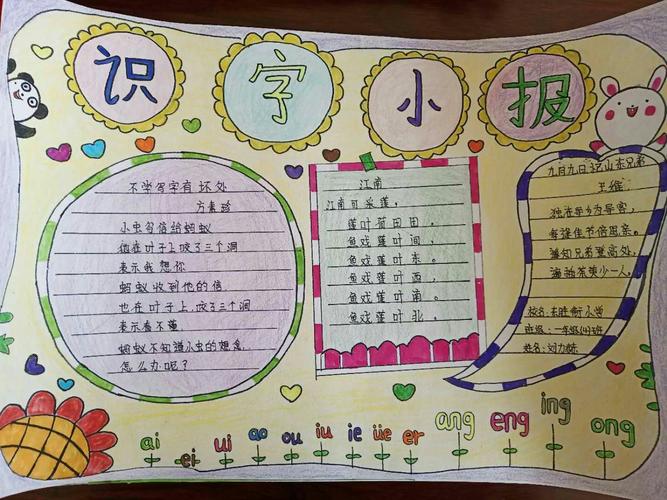 识字小报
不学写字有坏处
方素珍
小虫写信给蚂蚁
他在叶子上咬了三个洞
表示我想你
蚂蚁收到他的信
也在叶子上咬了三个洞
表示看不懂
蚂蚁不知道小虫的想念
怎么办呢?
江南
江南可采莲,
莲叶荷田田。
鱼戏莲叶间,
鱼戏莲叶东。
鱼戏莲叶西,
鱼戏莲叶南。
鱼戏莲叶北。
九月九日记山东兄弟
王维
独在乡为客,
每逢佳节倍思亲。
知兄弟登高处,
遍少一人。
校名:小学
班级:一年级(4)班
姓名:刘力
ai ei ui ao ou iu ie üe er ang eng ing ong